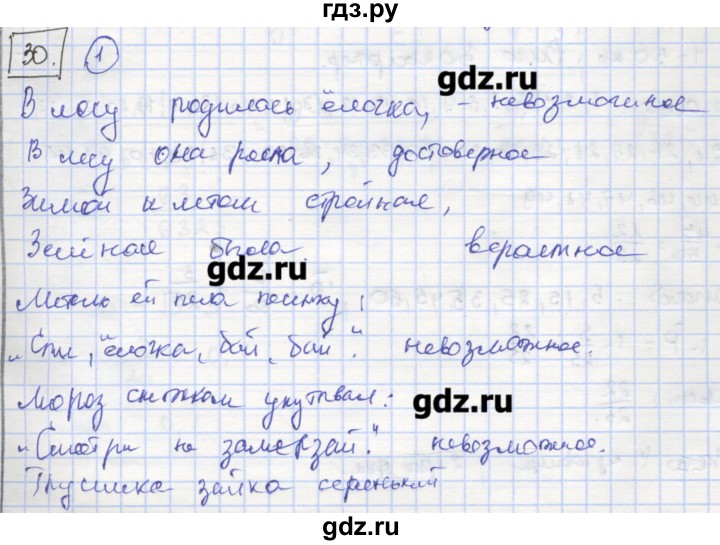 гдз.ру
30. 1
В лесу родилась ёлочка, - невозможное
В лесу она росла, достоверное
Зимой и летом стройная,
Зелёная была. вероятное
Метель ей пела песенку:
„Спи, ёлочка, бай, бай". невозможное.
Мороз снежком укутывал:
„Смотри не замерзай." невозможное.
Трусишка зайка серенький
gdz.ru
gdz.ru
gdz.ru
gdz.ru